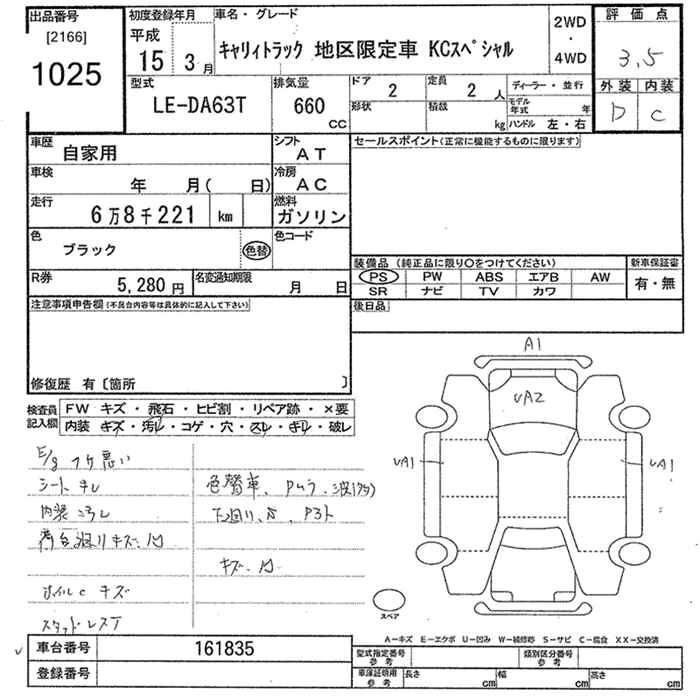 出品番号
[2166]
1025
初度登録年月
平成
15 3月
車名・グレード
キャリィトラック 地区限定車 KCスペシャル
2WD
・
4WD
評価点
3.5
外装 内装
D C
型式
LE-DA63T
排気量
660
CC
ドア 2
定員 2人
形状
積載 kg
ディーラー・並行
モデル年式 年
ハンドル 左・右
車歴 自家用
シフト AT
車検 年 月( 日)
冷房 AC
走行 6万8千221 km
燃料 ガソリン
色 ブラック 色替
色コード
R券 5,280円
名変通知期限 月 日
セールスポイント(正常に機能するものに限ります)
装備品 (純正品に限り○をつけてください)
新車保証書
PS PW ABS エアB AW
SR ナビ TV カワ
有・無
後日品
注意事項申告欄(不具合内容等は具体的に記入して下さい)
修復歴 有〔箇所 〕
検査員記入欄
FW キズ・飛石・ヒビ割・リペア跡・×要
内装 キズ・汚れ・コゲ・穴・スレ・キレ・破レ
E/g フケ悪い
シートキレ
内装ヨゴレ
荷台廻りキズ・凹
ホイルC キズ
スタッドレスT
色替車、Pムラ・波(アタ)
下廻り、S、P3ト
キズ・凹
A1
UA2
UA1
UA1
スペア
A-キズ E-エクボ U-凹み W-補修跡 S-サビ C-腐食 XX-交換済
車台番号 161835
登録番号
型式指定番号 参考
類別区分番号 参考
車庫証明用 参考
長さ cm
幅 cm
高さ cm